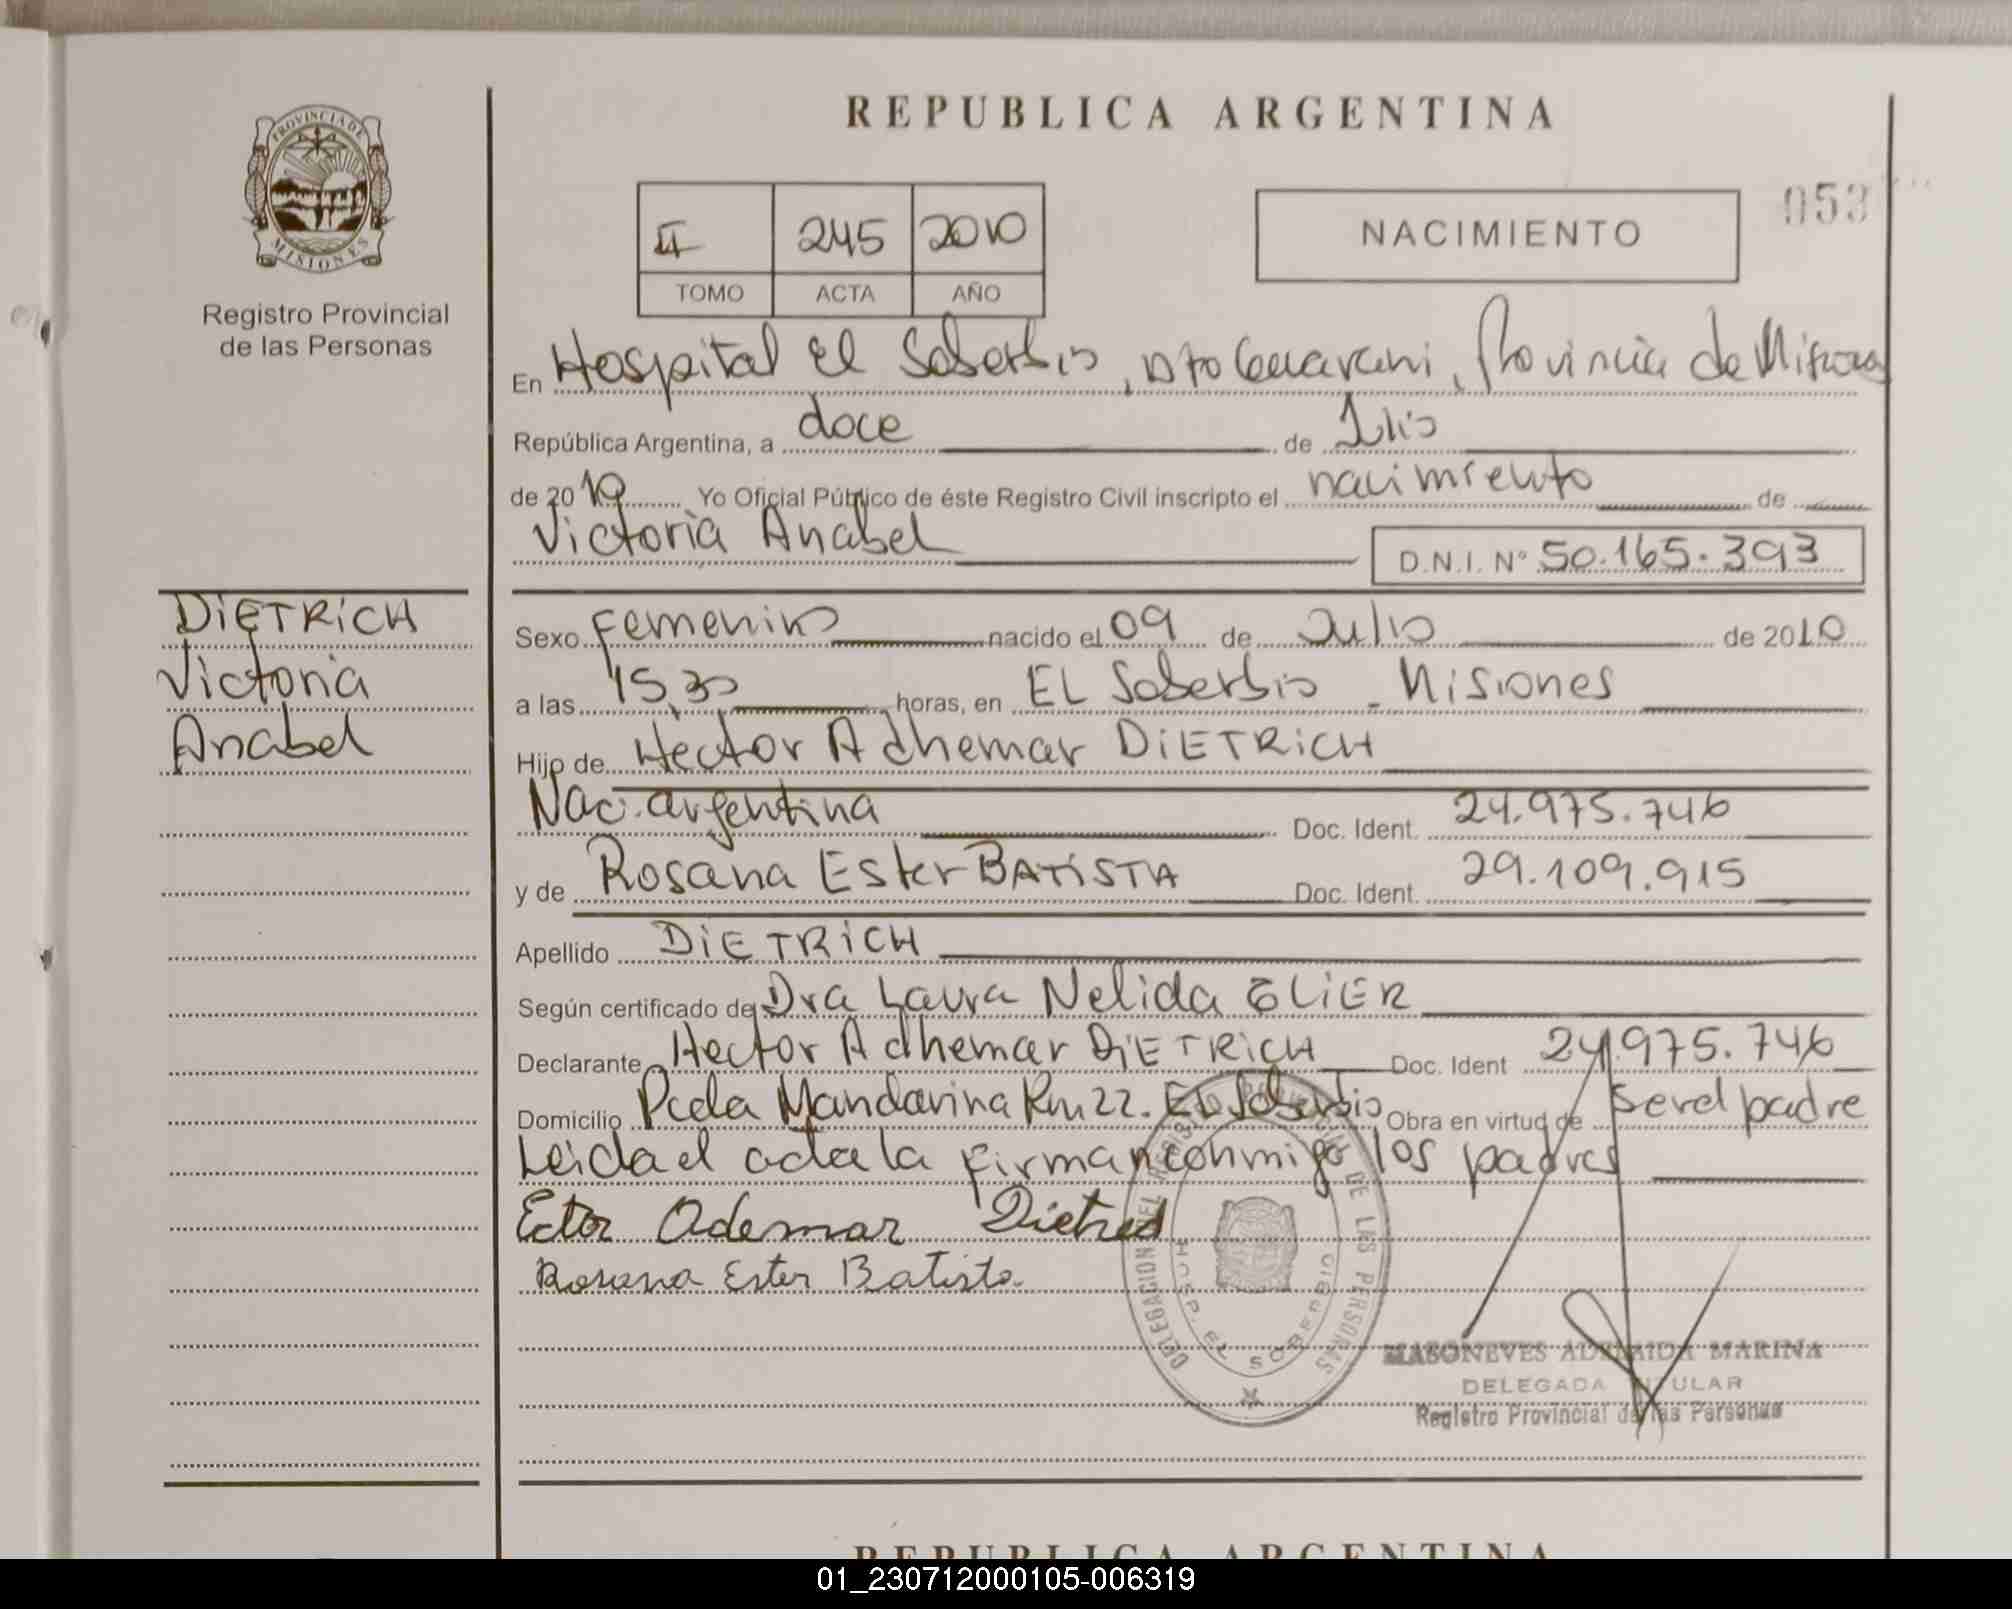 REPUBLICA ARGENTINA
PROVINCIA DE
MISIONES
Registro Provincial
de las Personas
II 245 2010
TOMO ACTA AÑO
NACIMIENTO
053
En Hospital El Soberbio, Dto Guaraní, Provincia de Misiones
República Argentina, a doce de Julio
de 2010 Yo Oficial Público de éste Registro Civil inscripto el nacimiento de
Victoria Anabel
D.N.I. N° 50.165.393
DIETRICH
Victoria
Anabel
Sexo Femenino nacido el 09 de Julio de 2010
a las 15,30 horas, en EL Soberbio - Misiones
Hijo de Hector Adhemar DIETRICH
Nac. argentina Doc. Ident. 24.975.746
y de Rosana Ester BATISTA Doc. Ident. 29.109.915
Apellido DIETRICH
Según certificado de Dra Laura Nelida GLIER
Declarante Hector Adhemar DIETRICH Doc. Ident 24.975.746
Domicilio Pcda Mandarina Km 22. EL Soberbio Obra en virtud de ser el padre
Leida el acta la firman conmigo los padres
Ector Ademar Dietred
Rosana Ester Batista
DELEGACION DEL REGISTRO PROVINCIAL DE LAS PERSONAS
HOSP. EL SOBERBIO
MASONEVES ADELAIDA MARINA
DELEGADA TITULAR
Registro Provincial de las Personas
REPUBLICA ARGENTINA
01_230712000105-006319